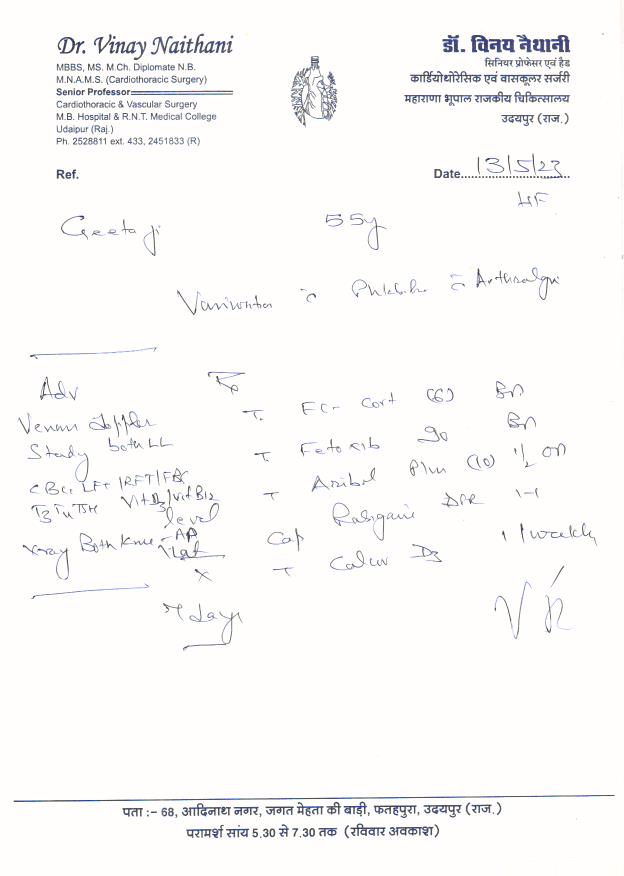 Dr. Vinay Naithani
MBBS, MS. M.Ch. Diplomate N.B.
M.N.A.M.S. (Cardiothoracic Surgery)
Senior Professor
Cardiothoracic & Vascular Surgery
M.B. Hospital & R.N.T. Medical College
Udaipur (Raj.)
Ph. 2528811 ext. 433, 2451833 (R)
डॉ. विनय नैथानी
सिनियर प्रोफेसर एवं हैड
कार्डियोथोरेसिक एवं वासकूलर सर्जरी
महाराणा भूपाल राजकीय चिकित्सालय
उदयपुर (राज.)
Ref.
Date 13/5/23
Geeta ji 55y
Adv
Venous Doppler
Study both LL
CBC, LFT/RFT/FBS
T3 T4 TSH Vit D3/Vit B12
level
Xray Both Knee - AP
Lat
T. EC- Cort (6)
T. 90
T Plus (10) 1/2
Cap DSR 1-1
T D3 1/weekly
7 days
पता :– 68, आदिनाथ नगर, जगत मेहता की बाड़ी, फतहपुरा, उदयपुर (राज.)
परामर्श सांय 5.30 से 7.30 तक (रविवार अवकाश)